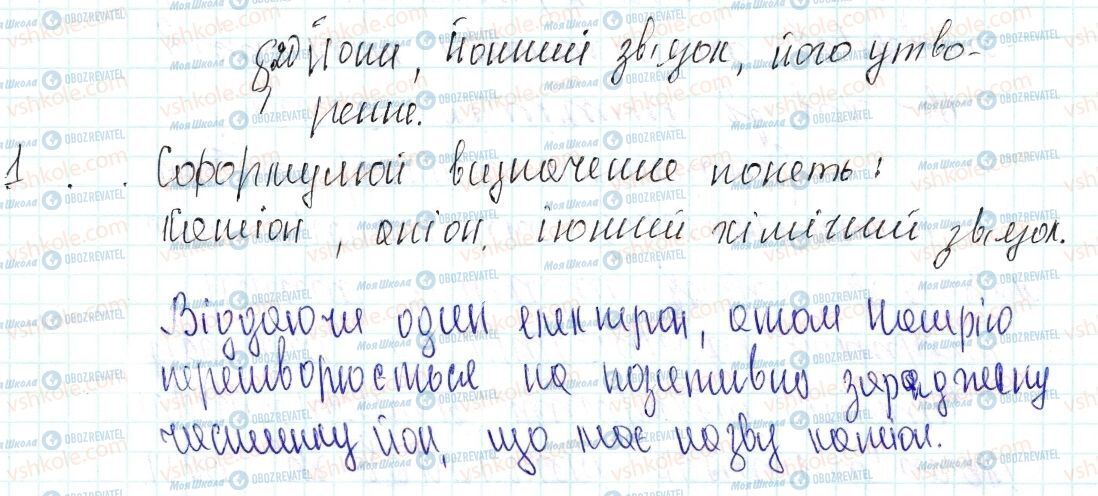 §20 Йони, йонний зв'язок, його утво-
рення.
1. Сформулюй визначення понять:
Катіон, аніон, іонний хімічний зв'язок.
Віддаючи один електрон, атом Натрію
перетворюється на позитивно заряджену
частинку йон, що має назву катіон.